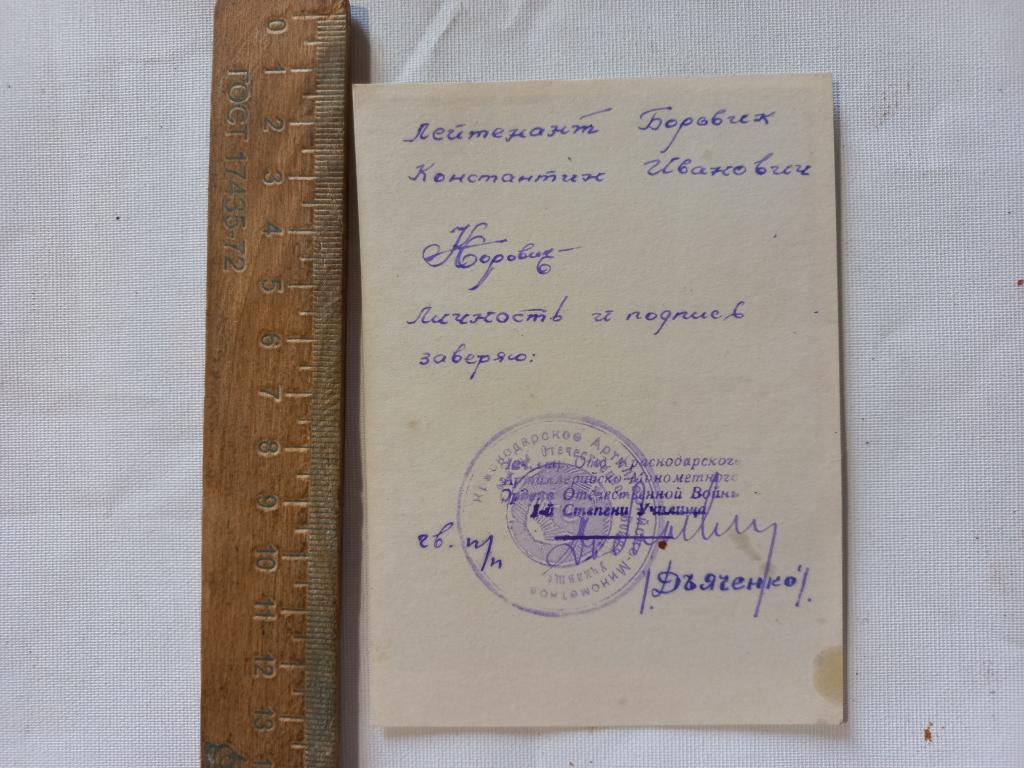 ГОСТ 17435-72
0 1 2 3 4 5 6 7 8 9 10 11 12 13
Лейтенант Боровик
Константин Иванович
КБоровик
Личность и подпись
заверяю:
Краснодарское Артиллерийско Минометное
Нач. Отд. Краснодарского
Артиллерийско-Минометного
Ордена Отечественной Войны
1-й Степени Училища
гв. п/п
/Дъяченко/.